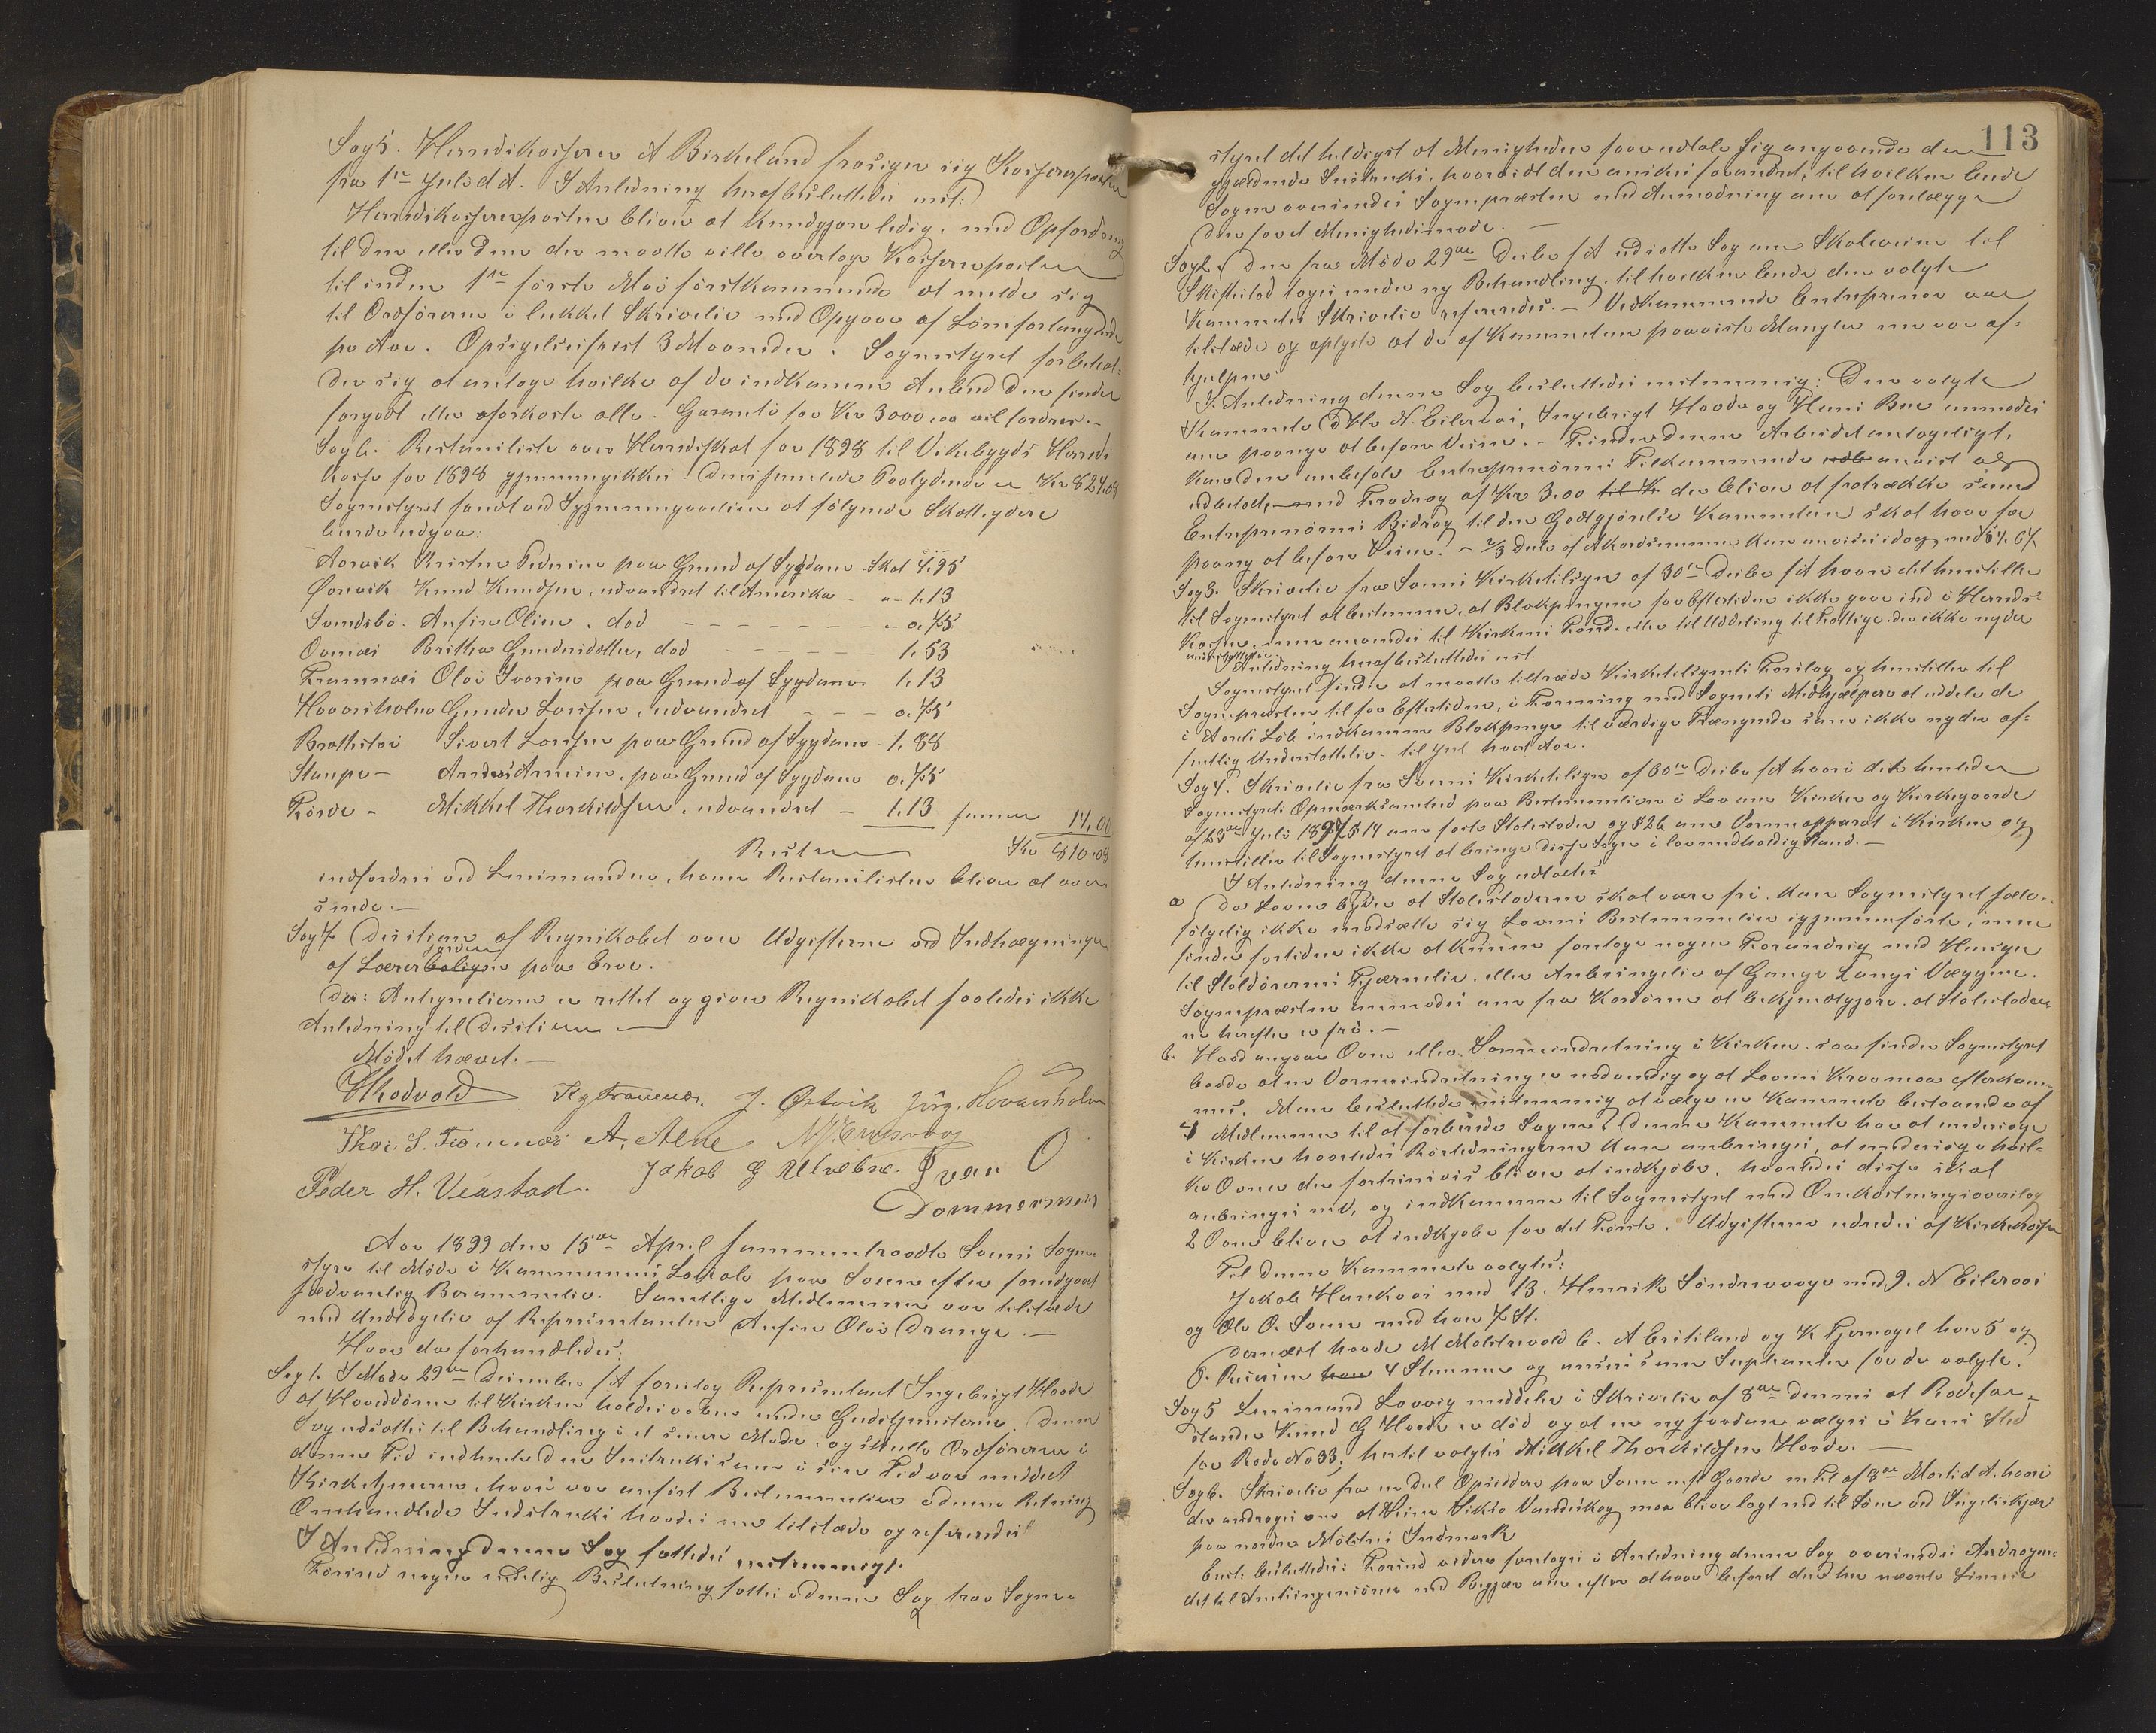 Sag 5. Herredskasserer A Birkeland frasiger sig Kassererposten
fra 1ste Juli d A. I Anledning heraf besluttedes enst:
Herredskassererposten bliver at kundgjøre ledig, med Opfordring
til den eller dem der maatte ville overtage Kassererposten
til inden 1ste første Mai førstkommende at melde sig
til Ordføreren i lukket Skrivelse med Opgave af Lønsforlangende
pr Aar. Opsigelsesfrist 3 Maaneder. Sognestyret forbehol-
der sig at antage hvilke af de indkomne Anbud den finder
forgodt eller forkaste alle. Garanti for Kr 3000,00 vil fordres.-
Sag 6. Restanseliste over Herredsskat for 1898 til Vikebygds Herreds
kasse for 1898 gjennemgikkes. Den samlede Paalydende er Kr 824,08
Sognestyret fandt ved Gjennemgaaelsen at følgende Skatteydere
burde udgaa:
Aarvik Kristen Pedersen paa Grund af Sygdom Skat 4,95
Ørevik Knud Knudsen, udvandret til Amerika - " - 1,13
Sundsbø. Anfin Olsen, død - - - - - - - - 0,75
Oernæs Britha Gundersdatter, død - - - - - - 1,53
Framnæs Olai Ivarsen paa Grund af Sygdom. 1,13
Hovarsholm Gunder Larsen, udvandret - - - 0,75
Brattestø Sivert Larsen paa Grund af Sygdom - 1,88
Staupe - Andreas Arnesen, paa Grund af Sygdom 0,75
Førde - Mikkel Thorkildsen, udvandret - 1,13 sammen 14,00
Resten Kr 810,08
indfordres ved Lensmanden, hvem Restanselisten bliver at over
sende.-
Sag 7 Decision af Regnskabet over Udgifterne ved Indhægningen
jorden
af Lærerboligen paa Eroe.
Des: Antegnelserne er rettet og giver Regnskabet saaledes ikke
Anledning til Decision
Mødet hævet. -
J. Østvik Jørg. Hovarsholm
Thor. S. Framnes A. Alne
Peder H. Veastad. Jakob G Utvebræ. Iver O
Dommersnes
Aar 1899 den 15de April sammentraadte Sveens Sogne-
styre til Møde i Kommunens Lokale paa Sveen efter foregaaet
sædvanlig Berammelse. Samtlige Medlemmer var tilstede
med Undtagelse af Repræsentanten Anfin Olai Drange. -
Hvor da forhandledes:
Sag 1. I Møde 29de December f A foreslog Repræsentant Ingebrigt Hovde
at Hoveddøren til Kirken holdes aaben under Gudstjenesterne. Denne
Sag udsattes til Behandling i et senere Møde, og skulde Ordføreren i
denne Tid indhente den Instruks som i sin Tid var meddelt
Kirketjeneren, hvori var anført Bestemmelser i denne Retning
Omhandlede Instruks havdes nu tilstede og refereredes
I Anledning denne Sag fattedes enstemmigt.
Forind nogen endelig Beslutning fattes i denne Sag tror Sogne-
113
styret det heldigst at Menigheden faar udtale sig angaaende den
gjældende Instruks, hvorvidt den ønskes forandret, til hvilken Ende
Sagen oversendes Sognepræsten med Anmodning om at forelægge
den for et Menighedsmøde. -
Sag 2. Den fra Møde 29de Decbr f A udsatte Sag om Skoleveien til
Skiftestad toges under ny Behandling, til hvilken Ende den valgte
Kommittes Skrivelse refereredes. - Vedkommende Entreprenør var
tilstede og oplyste at de af Kommiteen paaviste Mangler nu var af-
hjulpne.
I Anledning denne Sag besluttedes enstemmig: Den valgte
Kommite DHr N. Eilerаas, Ingebrigt Hovda og Hans Bue anmodes
om paany at befare Veien. - Findes denne Arbeidet antageligt,
kan den anbefale Entreprenørens Tilkommende anvist og
udbetalt, med Fradrag af Kr 3,00 der bliver at fratrække som
Entreprenørens Bidrag til den Godtgjørelse Kommiteen skal have for
paany at befare Veien. - 2/3 Dele af Akkordsummen kan anvises idag
Sag 3. Skrivelse fra Sveens Kirketilsyn af 30te Decbr f A hvori det henstiller
til Sognestyret at bestemme, at Blokpengene for Eftertiden ikke gaar ind i Herreds-
kassen, men anvendes til Kirkens Fond eller til Uddeling til Fattige der ikke nyder
understøttelse
I Anledning heraf besluttedes enst.
Sognestyret finder at maatte tiltræde Kirketilsynets Forslag og henstiller til
Sognepræsten til for Eftertiden, i Forening med Sognets Medhjælpere at uddele de
i Aarets Løb indkomne Blokpenge til værdige Trængende som ikke nyder of-
fentlig Understøttelse - til Jul hvert Aar.
Sag 4. Skrivelse fra Sveens Kirketilsyn af 30te Decbr f A hvori det henleder
Sognestyrets Opmærksomhed paa Bestemmelsen i Lov om Kirker og Kirkegaarde
af 23de Juli 1897 § 14 om faste Stolestader og § 26 om Varmeapparat i Kirken og
henstiller til Sognestyret at bringe disse Sager i lovmedholdig Stand. -
I Anledning denne Sag udtaltes
a Da Loven byder at Stolestaderne skal være fri. kan Sognestyret sælv-
følgelig ikke modsætte sig Lovens Bestemmelser igjennemført, men
finder fortiden ikke at kunne foretage nogen Forandring med Hensyn
til Stoldørernes Fjernelse, eller Anbringelse af Gange langs Væggene.
Sognepræsten anmodes om fra Kordøren at bekjendtgjøre, at Stolestader
ne herefter er fri. -
b. Hvad angaar Ovne eller Varmeindretning i Kirken. saa finder Sognestyret
baade at en Varmeindretning er nødvendig og at Lovens Krav maa efterkom-
mes. Man besluttede enstemmig at vælge en Kommite bestaaende af
4 Medlemmer til at forberede Sagen. Denne Kommite har at undersøge
i Kirken hvorledes Rørledningerne kan anbringes, at undersøge hvil-
ke Ovne der fortrinsvis bliver at indkjøbe, hvorledes disse skal
anbringes m.v, og indkomme til Sognestyret med Omkostningsoverslag
2 Ovne bliver at indkjøbe for det Første. Udgifterne udredes af Kirkekassen
Til denne Kommite valgtes:
Jakob Haukaas med 13. Henrik Søndrevaage med 9. N Eileraas
og Ole O. Sveen med hver 7 St.
Dernæst havde M Molstrevold 6. A Eritsland og K Tjernagel hver 5 og
4 Stemmer og ansees som Suppleanter for de valgte.
Sag 5 Lensmand Lovvig meddeler i Skrivelse af 8de dennes at Rodefor-
stander Knud G Hovde er død og at en ny saadan vælges i hans Sted
for Rode No 33, hertil valgtes Mikkel Thorkildsen Hovde. -
Sag 6. Skrivelse fra en Del Opsiddere paa Sveen m fl Gaarde af 8de Marts d A. hvori
der andrages om at Veien Vandaskog maa blive lagt ned til Søen ved Ingelskjær
paa nordre Mølstre Indmark
Enst: besluttedes: Forind videre foretages i Anledning denne Sag oversendes Andragen-
det til Amtsingeniøren med Begjær om efter at have befaret den her nævnte Linie